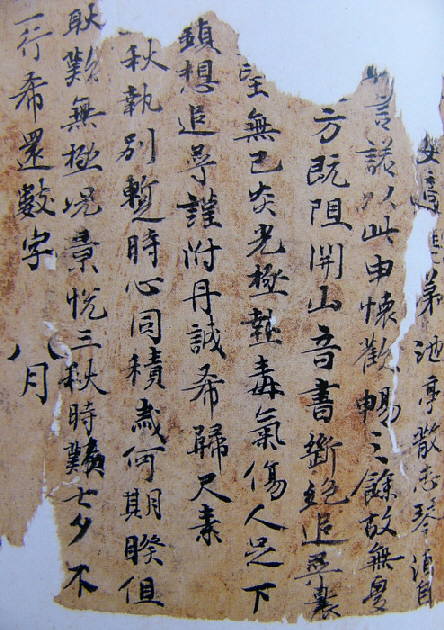 弟池亭散志琴酒自
言談以此申懷歡暢之餘故無
方既阻関山音書斷絶追尋曩
望無已炎光極熱毒氣傷人足下
想追尋謹附丹誠希歸尺素
秋執別暫時心同積歲何期暌
耿歎無極況景悅三秋時七夕不
一行希還數字 八月